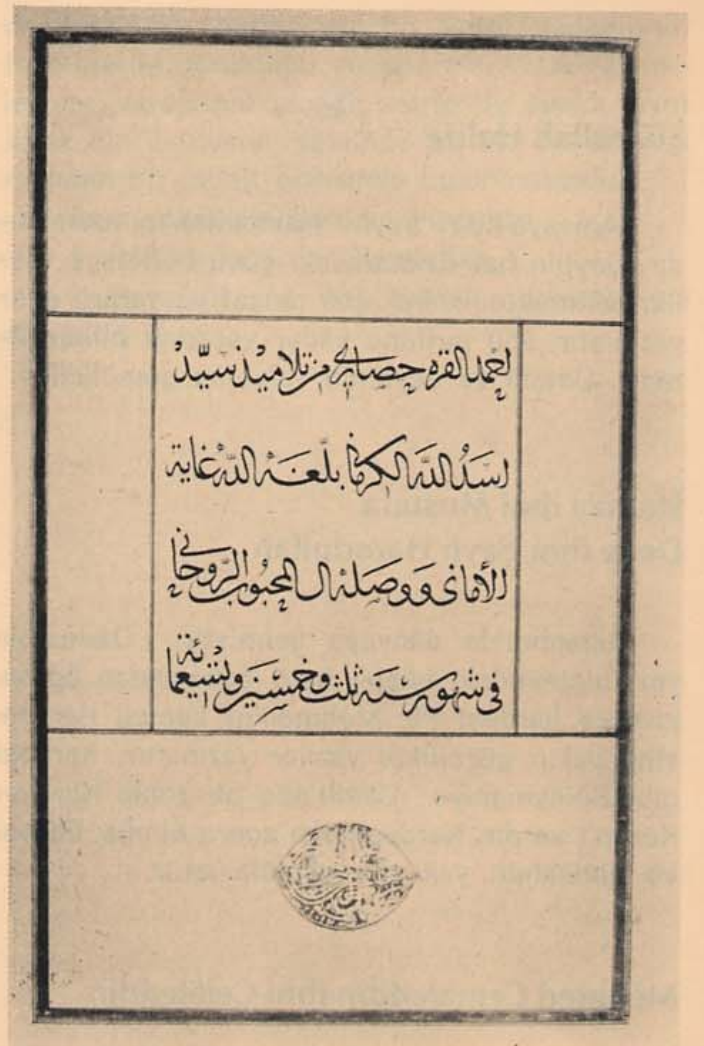 احمد القره حصاري من تلاميذ سيد
اسد الله الكرماني بلغه الله غاية
الأماني ووصله الى المحبوب الروحاني
في شهور سنة ثلث وخمسين وتسعمائة